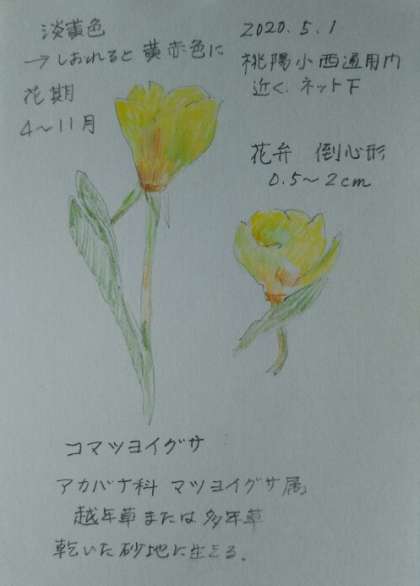 淡黄色
→しおれると黄赤色に
花期
4~11月
2020.5.1
桃陽小西通用門
近く、ネット下
花弁 倒心形
0.5~2cm
コマツヨイグサ
アカバナ科 マツヨイグサ属
越年草または多年草
乾いた砂地に生える。